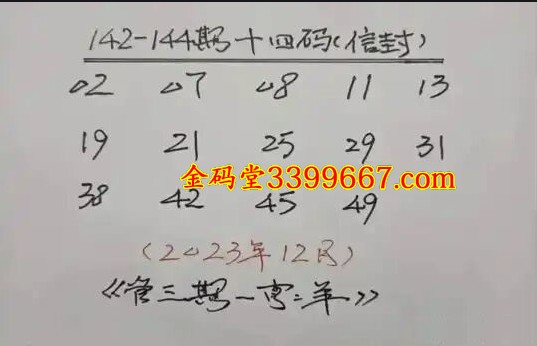 142-144期十四码(信封)
02 07 08 11 13
19 21 25 29 31
金码堂3399667.com
38 42 45 49
(2023年12月)
《管三期一宵:羊》